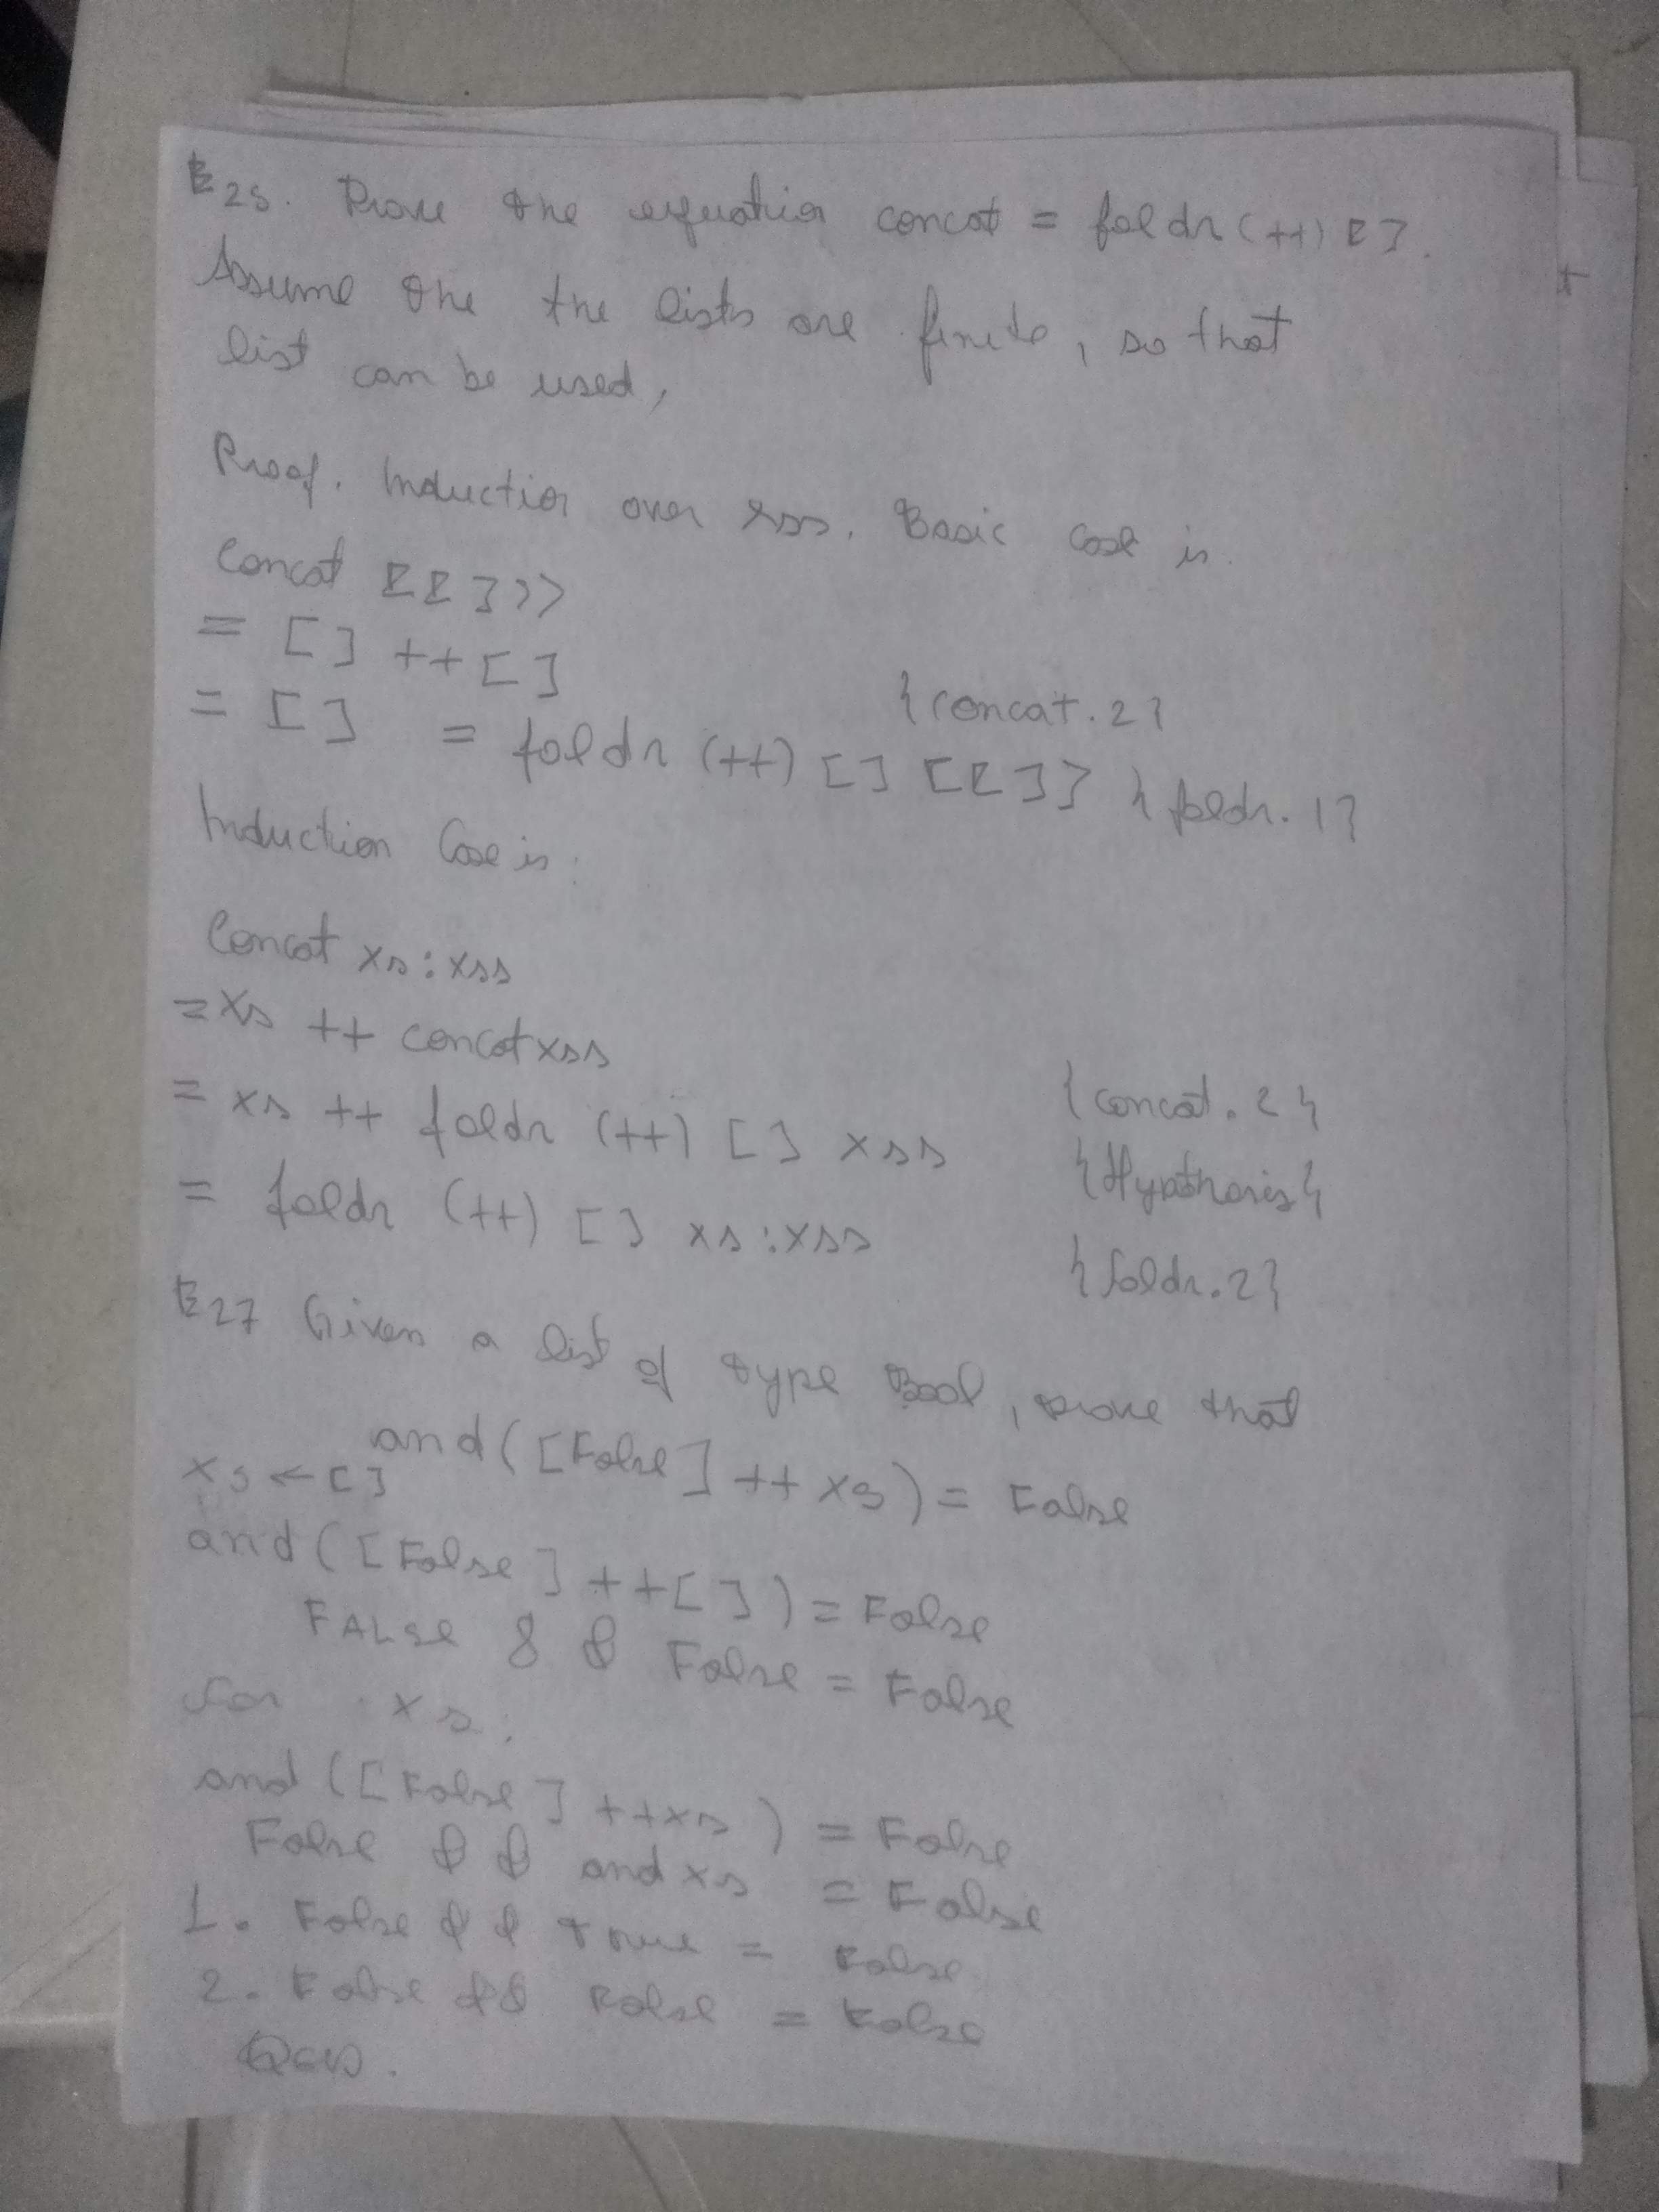 E25. Prove the equation concat = foldr (++) [].
Assume the the lists are finite, so that
list can be used,
Proof. Induction over xss. Basic case is
Concat [[]]
= [] ++ []
= [] {concat.2}
= foldr (++) [] [[]] {foldr.1}
Induction Case is:
Concat xs:xss
= xs ++ concat xss
= xs ++ foldr (++) [] xss {concat.2}
= foldr (++) [] xs:xss {Hypothesis}
{foldr.2}
E27 Given a list of type Bool, prove that
and ([False] ++ xs) = False
xs ← []
and ([False] ++ []) = False
FALSe && False = False
for xs:
and ([False] ++ xs) = False
False && and xs = False
1. False && true = False
2. False && False = False